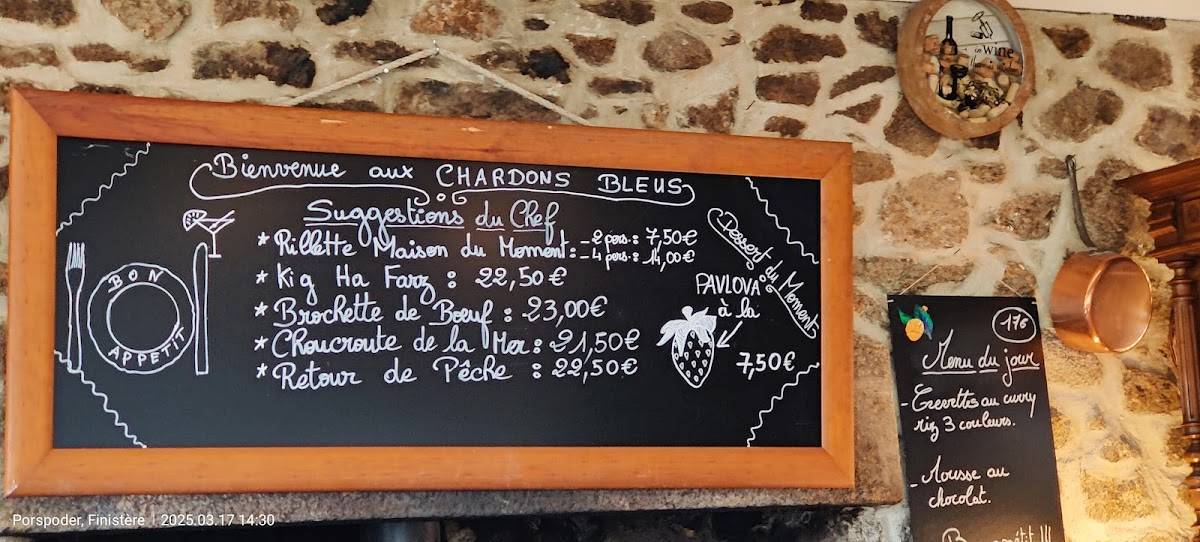 Bienvenue aux CHARDONS BLEUS
Suggestions du Chef
* Rillette Maison du Moment: - 2 pers.: 7,50€
- 4 pers.: 14,00€
* Kig Ha Farz : 22,50€
* Brochette de Bœuf : 23,00€
* Choucroute de la Mer : 21,50€
* Retour de Pêche : 22,50€
BON
APPETIT
Dessert du Moment
PAVLOVA
à la
7,50€
in Wine
17€
Menu du jour
- Crevettes au curry
riz 3 couleurs.
- Mousse au
chocolat.
Porspoder, Finistère | 2025.03.17 14:30